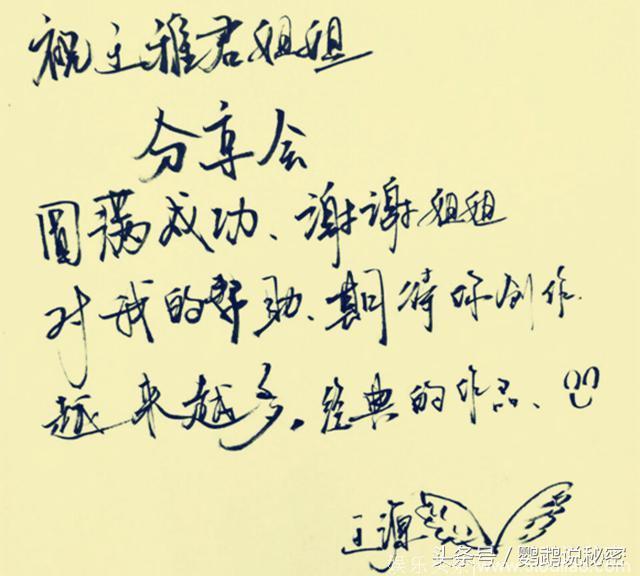 祝王雅君姐姐
分享会
圆满成功、谢谢姐姐
对我的帮助、期待你创作
越来越多,经典的作品、
王源
头条号/鹦鹉说秘密